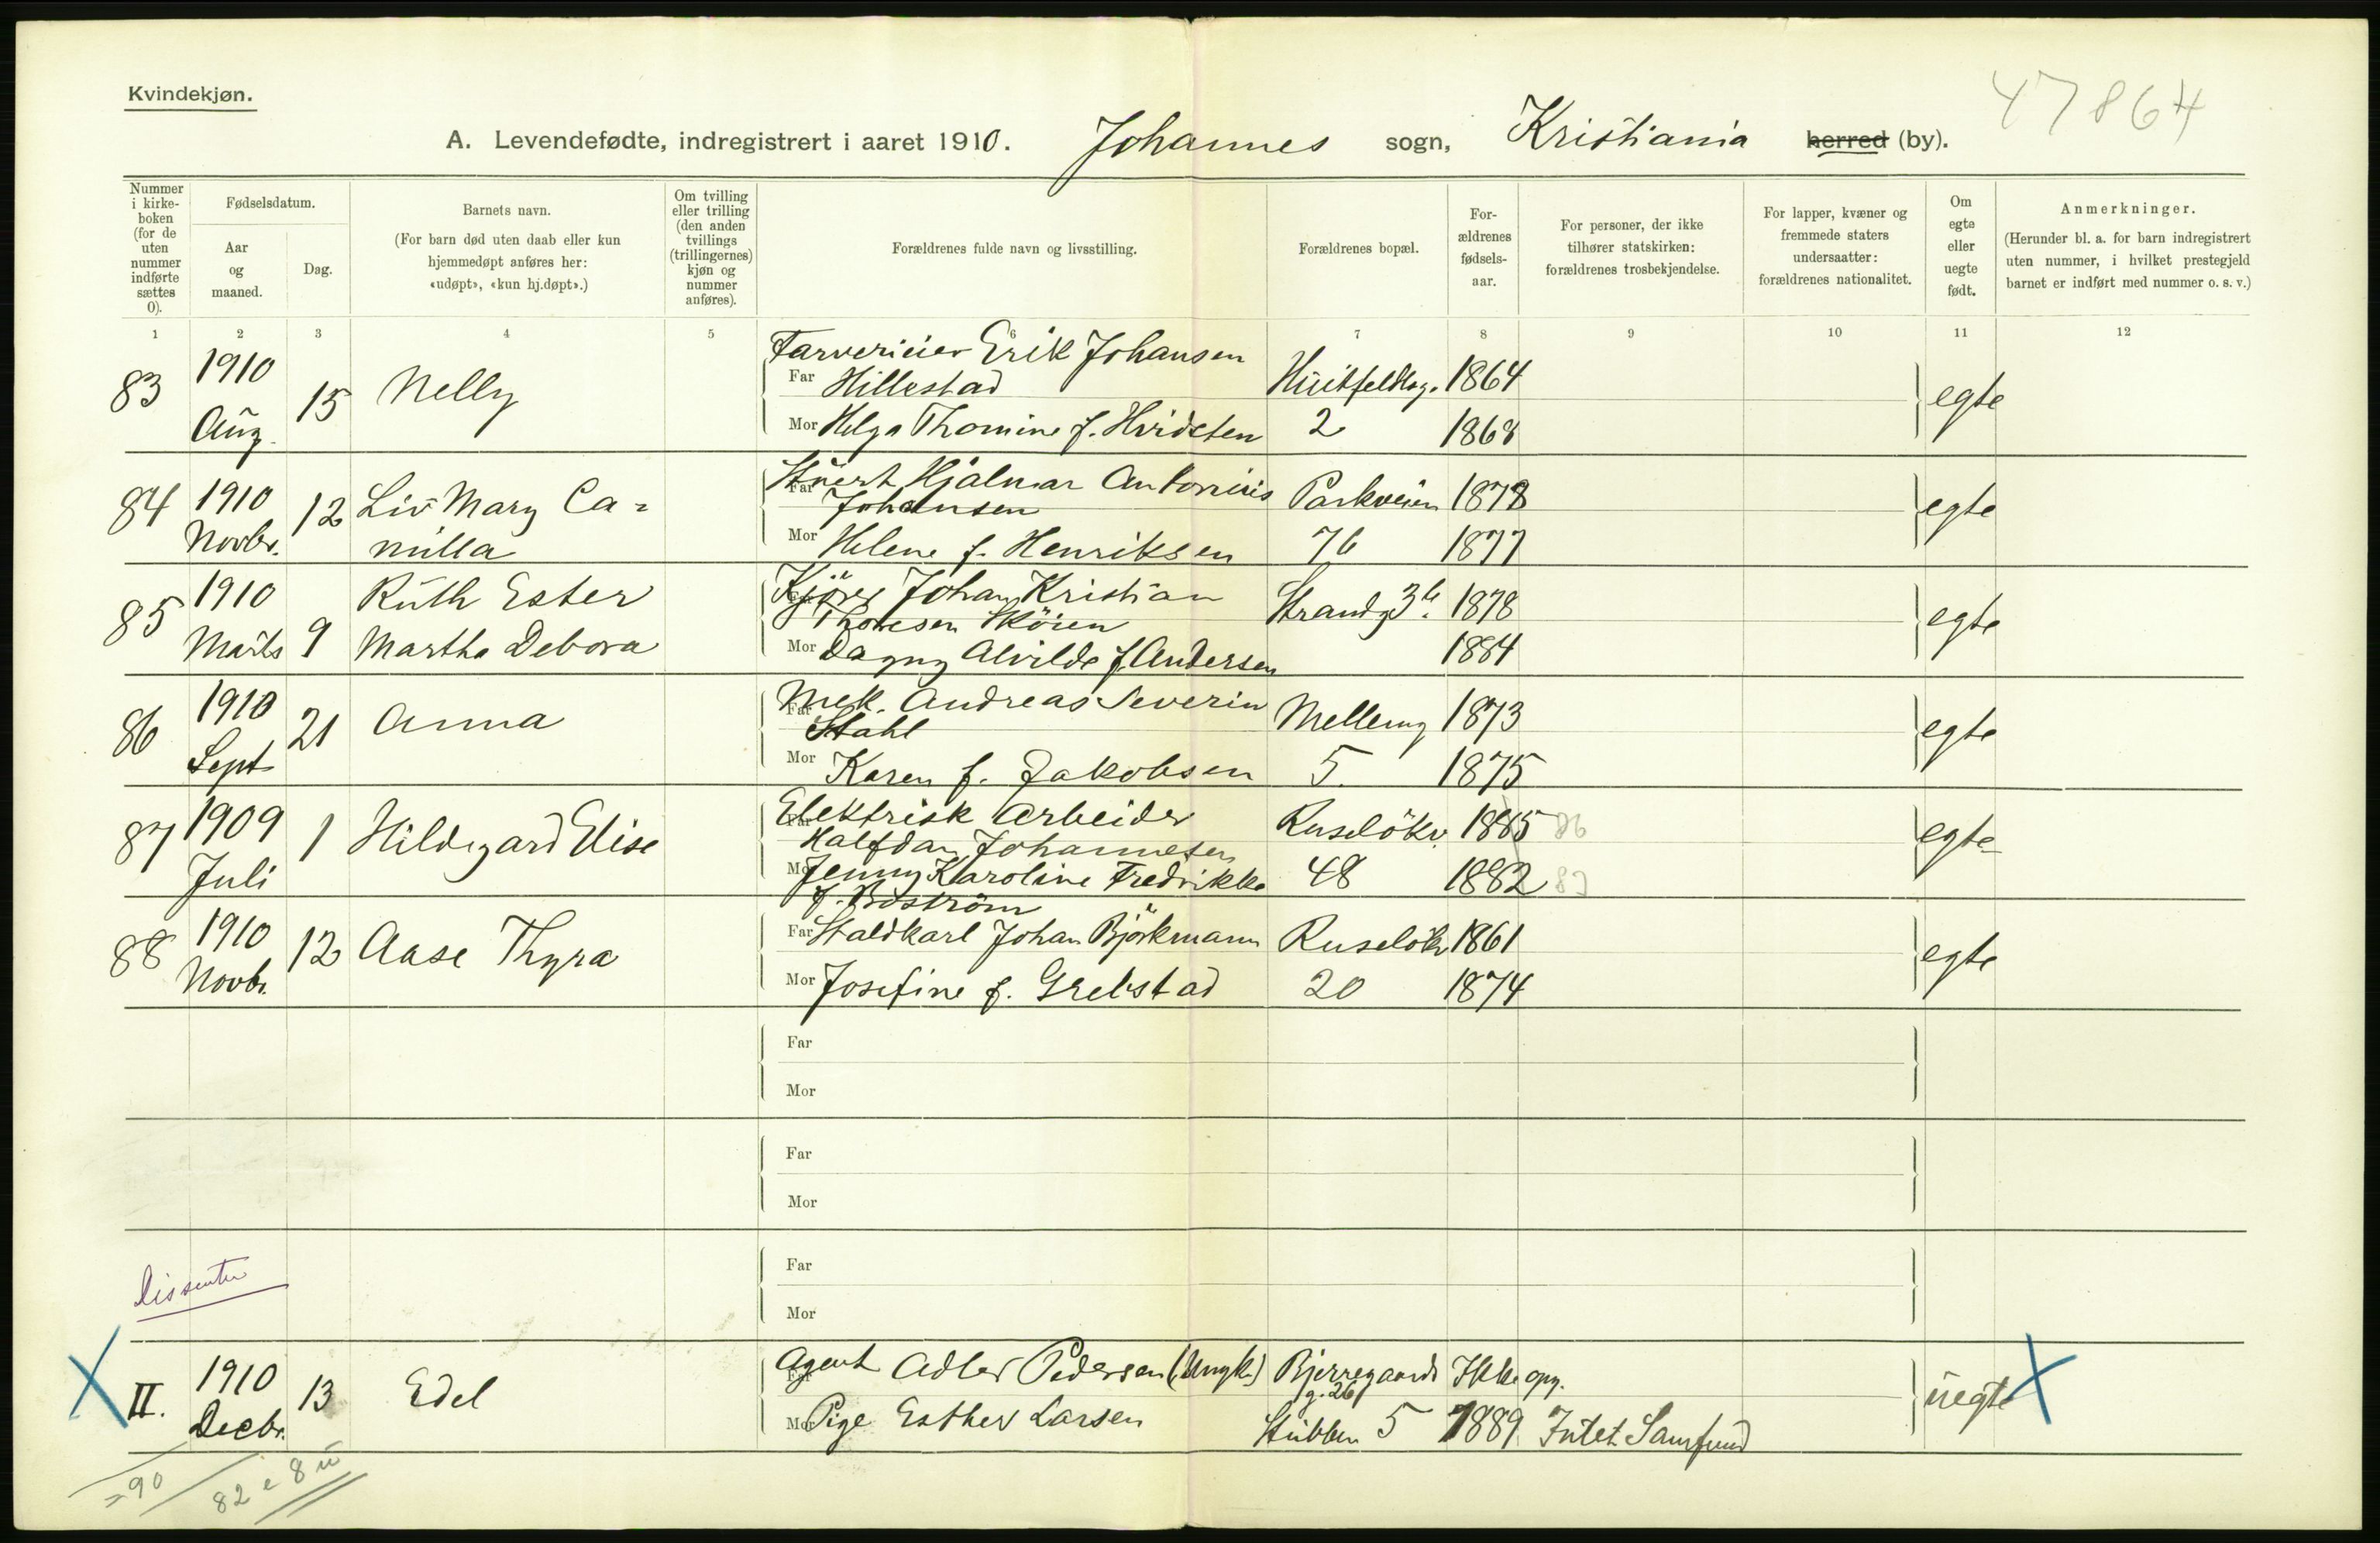 47864
Kvindekjøn.
A. Levendefødte, indregistrert i aaret 1910. Johannes sogn, Kristiania herred (by).
Nummer i kirke- boken (for de uten nummer indførte sættes 0).
Fødselsdatum.
Aar og maaned.
Dag.
Barnets navn.
(For barn død uten daab eller kun hjemmedøpt anføres her: «udøpt», «kun hj.døpt».)
Om tvilling eller trilling (den anden tvillings (trillingernes) kjøn og nummer anføres).
Forældrenes fulde navn og livsstilling.
Forældrenes bopæl.
For- ældrenes fødsels- aar.
For personer, der ikke tilhører statskirken: forældrenes trosbekjendelse.
For lapper, kvæner og fremmede staters undersaatter: forældrenes nationalitet.
Om egte eller uegte født.
Anmerkninger.
(Herunder bl. a. for barn indregistrert uten nummer, i hvilket prestegjeld barnet er indført med nummer o. s. v.)
1 2 3 4 5 6 7 8 9 10 11 12
83 1910 Aug. 15 Nelly
Farverieier Erik Johansen
Far Hillestad Huitfeldtsg. 1864
Mor Helga Thomine f. Hvidsten 2 1868
egte
84 1910 Novbr. 12 Liv Mary Ca=
milla
Far Stuert Hjalmar Antonius Parkveien 1878
Johansen
Mor Helene f. Henriksen 76 1877
egte
85 1910 Marts 9 Ruth Ester
Martha Debora
Far Kjörer Johan Kristian Strandg 3b. 1878
Thoresen Sköien
Mor Dagny Alvilde f. Andersen 1884
egte
86 1910 Sept 21 Anna
Far Mek. Andreas Severin Mellemg 1873
Stahl
Mor Karen f. Jakobsen 5. 1875
egte
87 1909 Juli 1 Hildegard Elise
Far Elektrisk Arbeider Ruselökv. 1885 86
Halfdan Johannesen
Mor Jenny Karoline Fredrikke 48 1882 82
f. Boström
egte
88 1910 Novb. 12 Aase Thyra
Far Staldkarl Johan Björkmann Ruselökv 1861
Mor Josefine f. Grebstad 20 1874
egte
Far
Mor
Far
Mor
Far
Mor
Dissenter
X II. 1910 Decbr. 13 Edel
Far Agent Adler Pedersen (Ungk.) Bjerregaards Ikke opg.
g. 26
Mor Pige Esther Larsen Stubben 5 1889 Intet Samfund
uegte X
=90
82 e 8 u